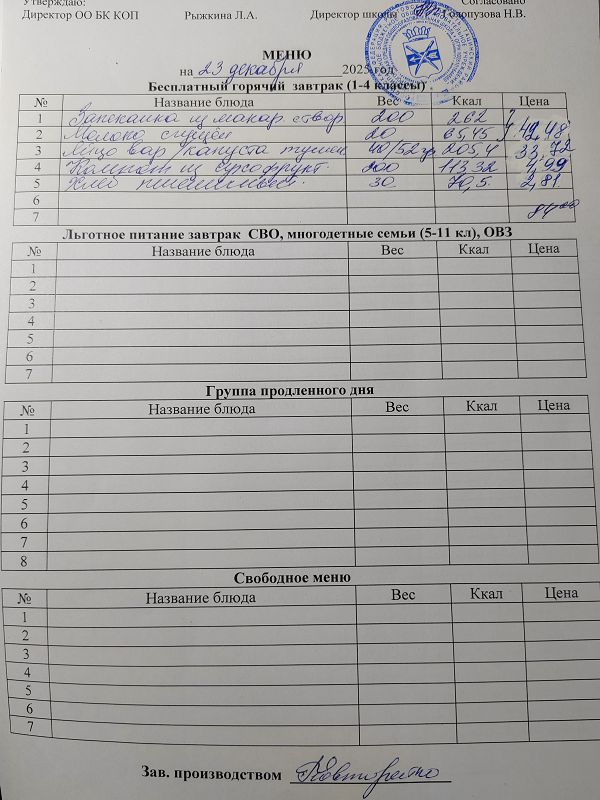 Утверждаю:
Согласовано
Директор ОО БК КОП Рыжкина Л.А. Директор школы Голопузова Н.В.
МЕНЮ
на 23 декабря 2025 год
Бесплатный горячий завтрак (1-4 классы)
№ Название блюда Вес Ккал Цена
1 Запеканка из макар. с твор. 200 262
2 Молоко сгущен 20 65,45 42,48
3 Яйцо вар/капуста тушен 40/52 гр 205,4 33,72
4 Компот из сухофрукт. 200 113,32 4,99
5 Хлеб 30 70,5 2,81
6
7
Льготное питание завтрак СВО, многодетные семьи (5-11 кл), ОВЗ
№ Название блюда Вес Ккал Цена
1
2
3
4
5
6
7
Группа продленного дня
№ Название блюда Вес Ккал Цена
1
2
3
4
5
6
7
8
Свободное меню
№ Название блюда Вес Ккал Цена
1
2
3
4
5
6
7
Зав. производством